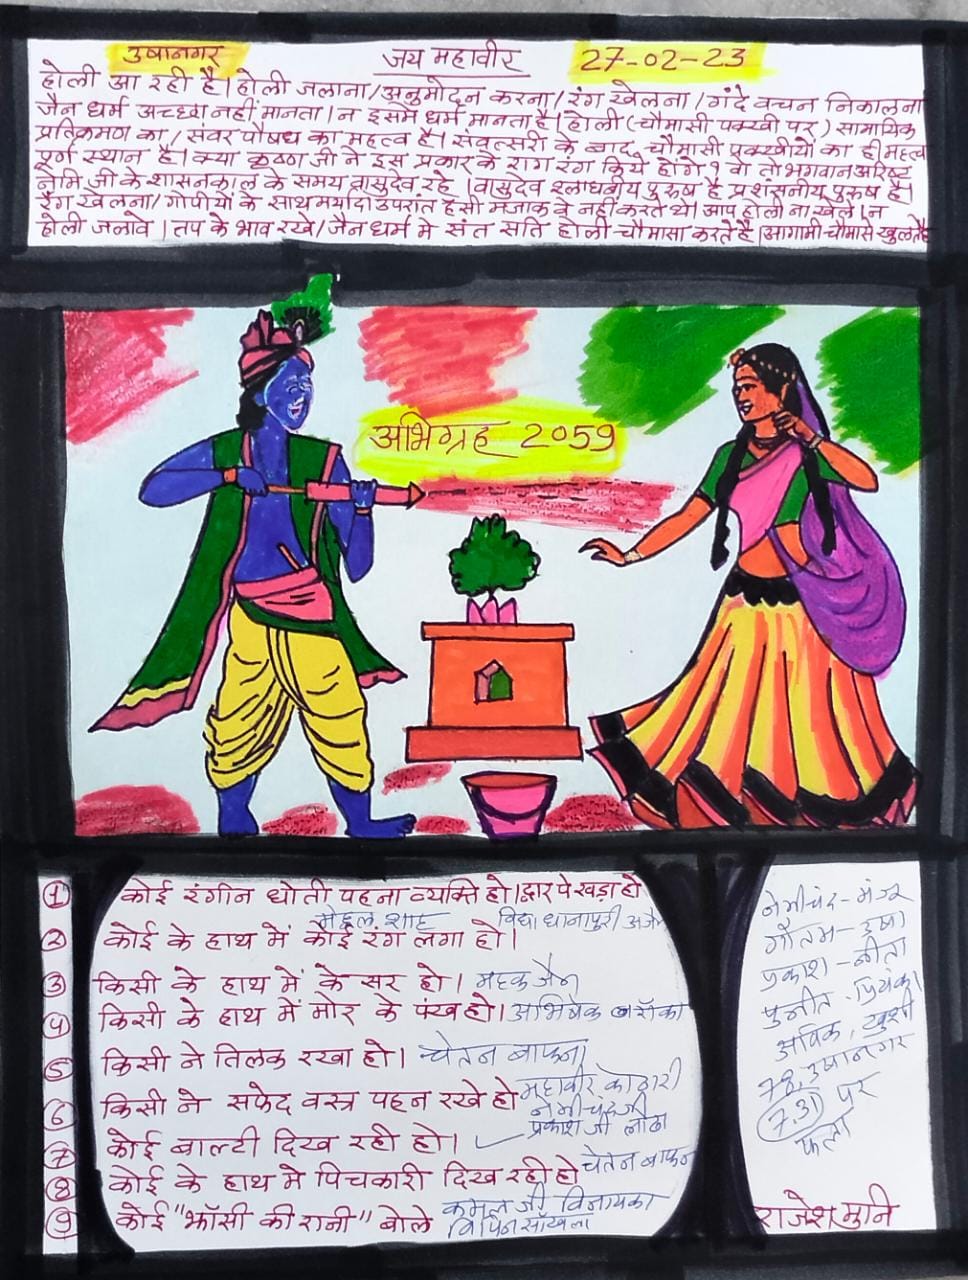 उषानगर जय महावीर 27-02-23
होली आ रही है। होली जलाना/अनुमोदन करना/रंग खेलना/गंदे वचन निकालना
जैन धर्म अच्छा नहीं मानता। न इसमें धर्म मानता है। होली (चौमासी पक्खी पर) सामायिक
प्रतिक्रमण का/संवर पौषध का महत्व है। संवत्सरी के बाद चौमासी पक्खीयों का ही महत्व
पूर्ण स्थान है। क्या कृष्ण जी ने इस प्रकार के राग रंग किये होंगे? वो तो भगवान अरिष्ट
नेमि जी के शासनकाल के समय वासुदेव रहे। वासुदेव श्लाघनीय पुरुष है प्रशंसनीय पुरुष है।
रंग खेलना/गोपीयों के साथ मर्यादा उपरांत हंसी मजाक वे नहीं करते थे। आप होली ना खेले। न
होली जलावे। तप के भाव रखे/जैन धर्म मे संत सति होली चौमासा करते हैं। आगामी चौमासे खुलते है
अभिग्रह 2059
1 कोई रंगीन धोती पहना व्यक्ति हो। द्वार पे खड़ा हो
शाह विद्या धानापुरी
2 कोई के हाथ में कोई रंग लगा हो।
3 किसी के हाथ में केसर हो। महक जैन
4 किसी के हाथ में मोर के पंख हो। अभिषेक
5 किसी ने तिलक रखा हो। चेतन बाफना
6 किसी ने सफेद वस्त्र पहन रखे हो महावीर कोठारी
नेमीचंद जी
प्रकाश जी लोढा
7 कोई बाल्टी दिख रही हो। ✓
8 कोई के हाथ मे पिचकारी दिख रही हो चेतन बाफना
9 कोई "झाँसी की रानी" बोले कमल जी विनायका
विपिन साँखला
नेमीचंद - मंजू
गौतम - उषा
प्रकाश - नीता
पुनीत - प्रियंका
अविक, खुशी
78, उषानगर
7.31 पर
फला
राजेश मुनि